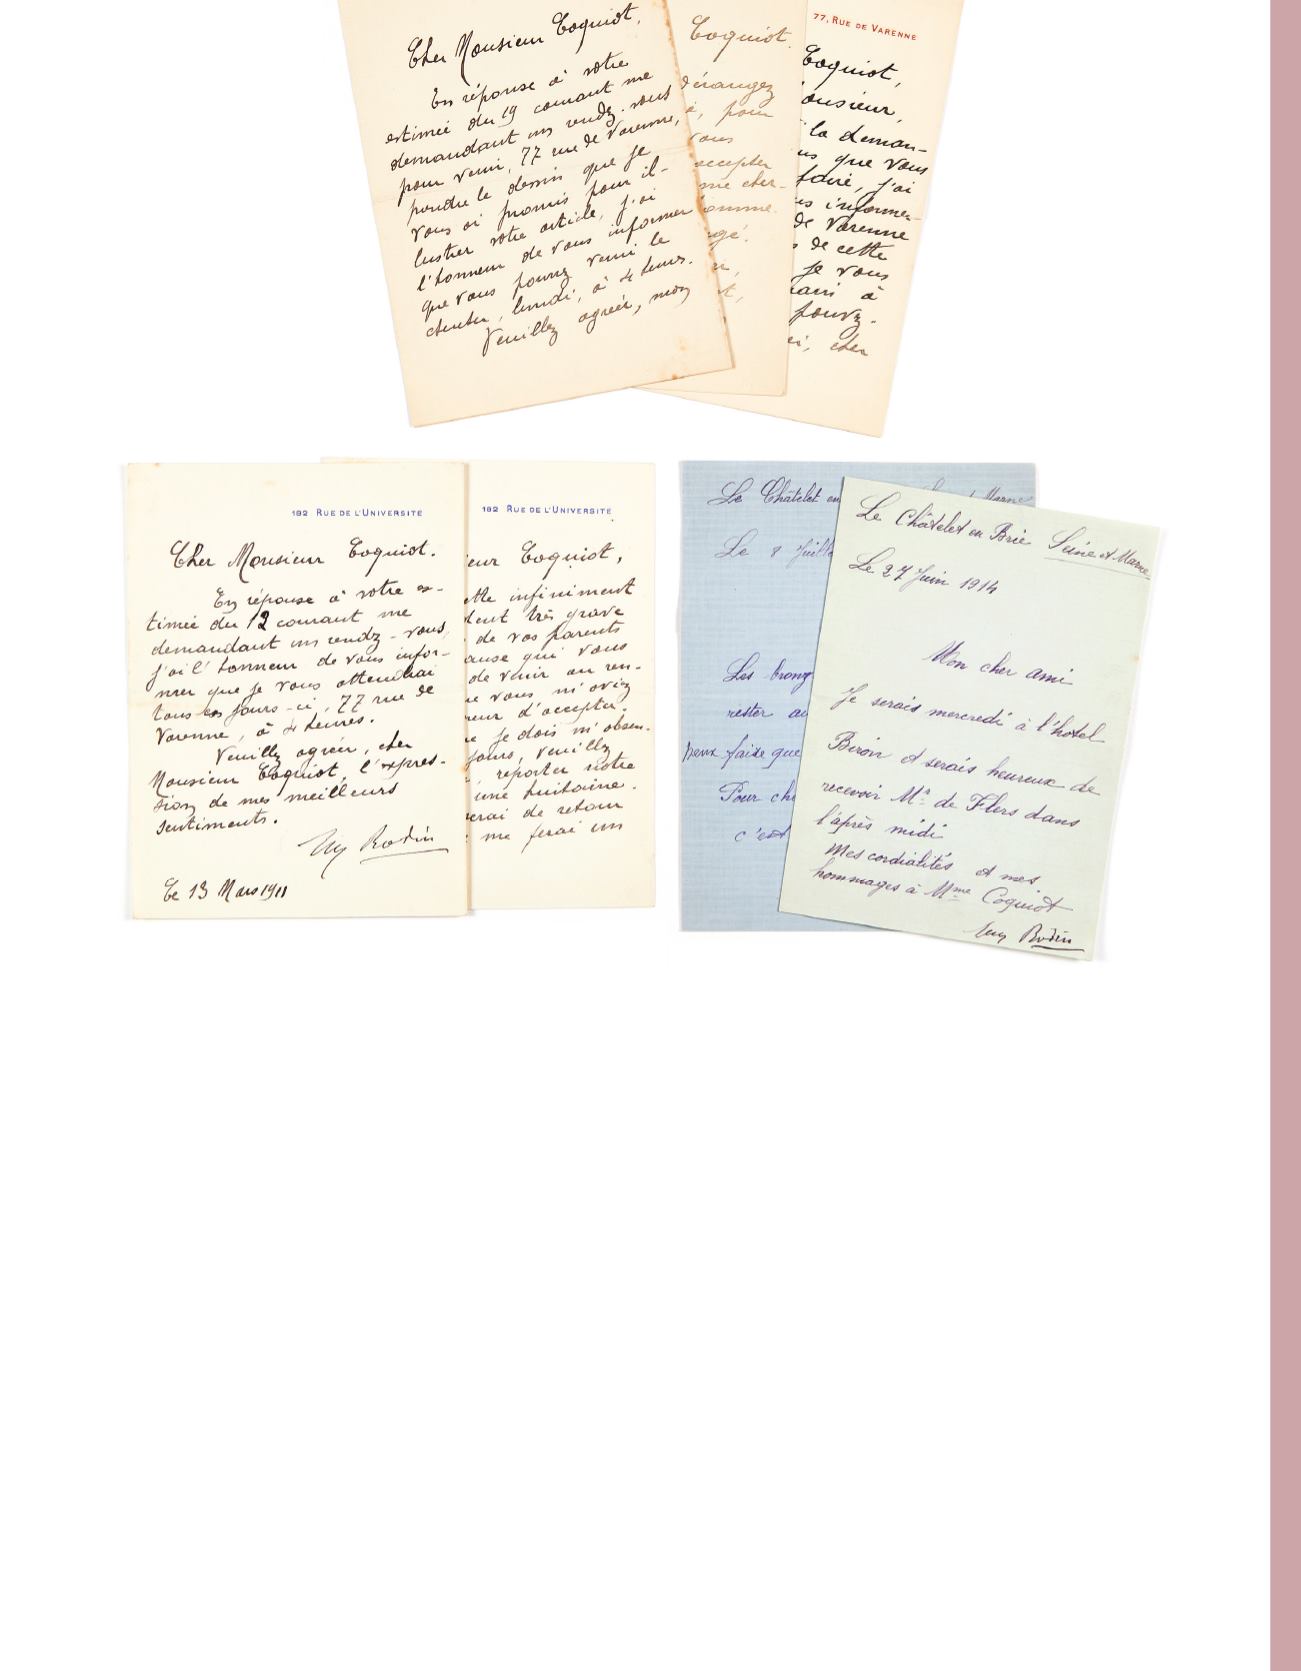 Cher Monsieur Coquiot,
En réponse à votre
estimée du 19 courant me
demandant un rendz-vous
pour venir, 77 rue de Varenne,
prendre le dessin que je
vous ai promis pour il-
lustrer votre article, j'ai
l'honneur de vous informer
que vous pourrez venir le
chercher, lundi, à 4 heures.
Veuillez agréer, mon
Coquiot.
dérangez
pour
vous
accepter
me cher-
comme
gé.
t,
77, RUE DE VARENNE
Coquiot,
onsieur,
la deman-
us que vous
faire, j'ai
us informer
de Varenne
s de cette
je vous
à
pouvz-
ci, cher
182 RUE DE L'UNIVERSITE
Cher Monsieur Coquiot.
En réponse à votre es-
timée du 12 courant me
demandant un rendz-vous,
j'ai l'honneur de vous infor-
mer que je vous attendrai
tous les jours-ci, 77 rue de
Varenne, à 4 heures.
Veuillez agréer, cher
Monsieur Coquiot, l'expres-
sion de mes meilleurs
sentiments.
Aug Rodin
Le 13 Mars 1911
182 RUE DE L'UNIVERSITE
ieur Coquiot,
ette infiniment
dent très grave
de vos parents
ause qui vous
de venir au ren-
e vous m'aviez
neur d'accepter.
e je dois m'absen-
jours, veuillez
reporter notre
une huitaine.
erai de retour
me ferai un
Le Châtelet en
Marne
Le 8 Juill
Les bronz
rester au
peux faire que
Pour ch
c'est
Le Châtelet en Brie Seine et Marne
Le 27 Juin 1914
Mon cher ami
Je serais mercredi à l'hotel
Biron et serais heureux de
recevoir Mr de Flers dans
l'après midi
Mes cordialités et mes
hommages à Mme Coquiot
Aug Rodin